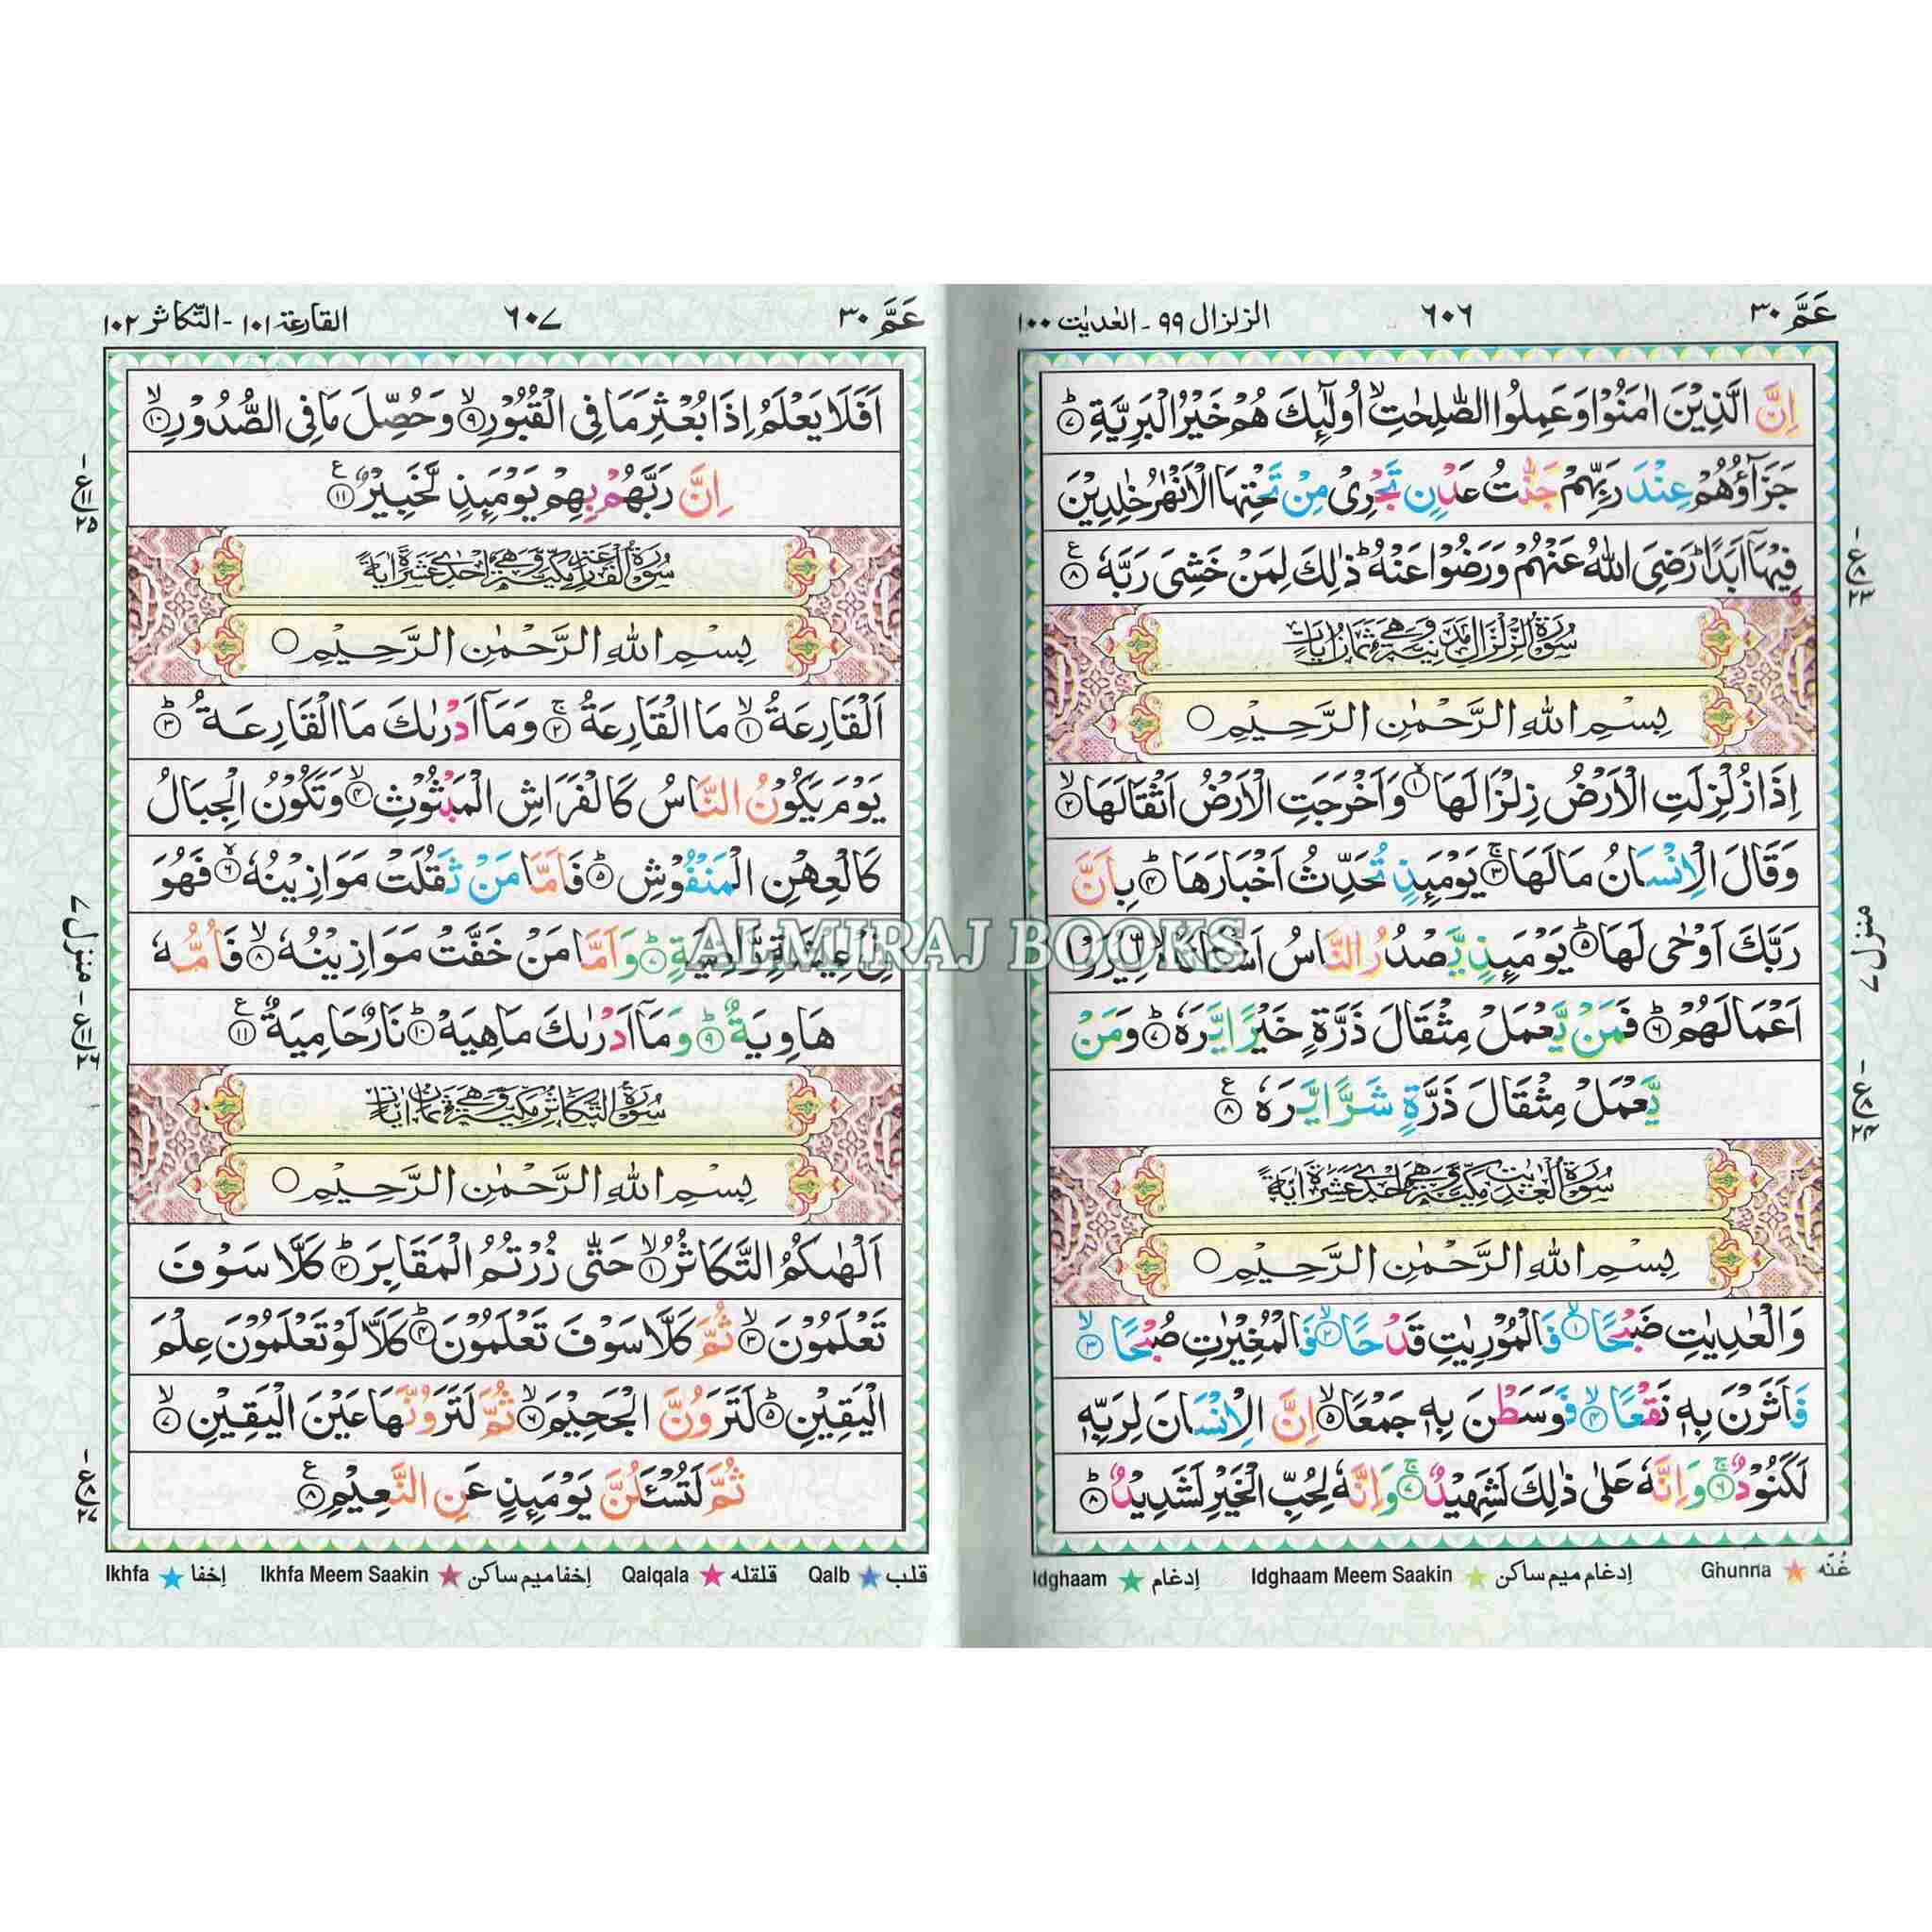 عَمَّ ٣٠
٦٠٦
الزلزال ٩٩ - العديت ١٠٠
اِنَّ الَّذِيْنَ اٰمَنُوْا وَعَمِلُوا الصّٰلِحٰتِ ۙ اُولٰٓئِكَ هُمْ خَيْرُ الْبَرِيَّةِ ؕ ۷
جَزَآؤُهُمْ عِنْدَ رَبِّهِمْ جَنّٰتُ عَدْنٍ تَجْرِىْ مِنْ تَحْتِهَا الْاَنْهٰرُ خٰلِدِيْنَ
فِيْهَاۤ اَبَدًا ؕ رَضِىَ اللّٰهُ عَنْهُمْ وَرَضُوْا عَنْهُ ؕ ذٰلِكَ لِمَنْ خَشِىَ رَبَّهٗ ۸ ع
- ع ٨ ٢٣
سُوْرَةُ الزِّلْزَالِ مَدَنِيَّةٌ وَّهِيَ ثَمَانُ اٰيَاتٍ
بِسْمِ اللهِ الرَّحْمٰنِ الرَّحِيْمِ
اِذَا زُلْزِلَتِ الْاَرْضُ زِلْزَالَهَا ۙ ۱ وَاَخْرَجَتِ الْاَرْضُ اَثْقَالَهَا ۙ ۲
وَقَالَ الْاِنْسَانُ مَا لَهَا ۚ ۳ يَوْمَئِذٍ تُحَدِّثُ اَخْبَارَهَا ؕ ۴ بِاَنَّ
رَبَّكَ اَوْحٰى لَهَا ؕ ۵ يَوْمَئِذٍ يَّصْدُرُ النَّاسُ اَشْتَاتًا ۙ لِّيُرَوْا
منزل ٧
اَعْمَالَهُمْ ؕ ۶ فَمَنْ يَّعْمَلْ مِثْقَالَ ذَرَّةٍ خَيْرًا يَّرَهٗ ؕ ۷ وَمَنْ
يَّعْمَلْ مِثْقَالَ ذَرَّةٍ شَرًّا يَّرَهٗ ۸ ع
- ع ٨ ٢٤
سُوْرَةُ الْعٰدِيٰتِ مَكِّيَّةٌ وَّهِيَ اِحْدٰى عَشَرَةَ اٰيَةً
بِسْمِ اللهِ الرَّحْمٰنِ الرَّحِيْمِ
وَالْعٰدِيٰتِ ضَبْحًا ۙ ۱ فَالْمُوْرِيٰتِ قَدْحًا ۙ ۲ فَالْمُغِيْرٰتِ صُبْحًا ۙ ۳
فَاَثَرْنَ بِهٖ نَقْعًا ۙ ۴ فَوَسَطْنَ بِهٖ جَمْعًا ۙ ۵ اِنَّ الْاِنْسَانَ لِرَبِّهٖ
لَكَنُوْدٌ ۚ ۶ وَاِنَّهٗ عَلٰى ذٰلِكَ لَشَهِيْدٌ ۚ ۷ وَاِنَّهٗ لِحُبِّ الْخَيْرِ لَشَدِيْدٌ ؕ ۸
غُنّه Ghunna إدغام ميم ساكن Idghaam Meem Saakin إدغام Idghaam
عَمَّ ٣٠
٦٠٧
القارعة ١٠١ - التكاثر ١٠٢
اَفَلَا يَعْلَمُ اِذَا بُعْثِرَ مَا فِى الْقُبُوْرِ ۙ ۹ وَحُصِّلَ مَا فِى الصُّدُوْرِ ۙ ۱۰
اِنَّ رَبَّهُمْ بِهِمْ يَوْمَئِذٍ لَّخَبِيْرٌ ۱۱ ع
- ع ١١ ٢٥
سُوْرَةُ الْقَارِعَةِ مَكِّيَّةٌ وَّهِيَ اِحْدٰى عَشَرَةَ اٰيَةً
بِسْمِ اللهِ الرَّحْمٰنِ الرَّحِيْمِ
اَلْقَارِعَةُ ۙ ۱ مَا الْقَارِعَةُ ۚ ۲ وَمَاۤ اَدْرٰىكَ مَا الْقَارِعَةُ ؕ ۳
يَوْمَ يَكُوْنُ النَّاسُ كَالْفَرَاشِ الْمَبْثُوْثِ ۙ ۴ وَتَكُوْنُ الْجِبَالُ
كَالْعِهْنِ الْمَنْفُوْشِ ؕ ۵ فَاَمَّا مَنْ ثَقُلَتْ مَوَازِيْنُهٗ ۙ ۶ فَهُوَ
فِىْ عِيْشَةٍ رَّاضِيَةٍ ؕ ۷ وَاَمَّا مَنْ خَفَّتْ مَوَازِيْنُهٗ ۙ ۸ فَاُمُّهٗ
هَاوِيَةٌ ؕ ۹ وَمَاۤ اَدْرٰىكَ مَاهِيَهْ ؕ ۱۰ نَارٌ حَامِيَةٌ ۱۱ ع
منزل ٧ - ع ١١ ٢٦
سُوْرَةُ التَّكَاثُرِ مَكِّيَّةٌ وَّهِيَ ثَمَانُ اٰيَاتٍ
بِسْمِ اللهِ الرَّحْمٰنِ الرَّحِيْمِ
اَلْهٰىكُمُ التَّكَاثُرُ ۙ ۱ حَتّٰى زُرْتُمُ الْمَقَابِرَ ؕ ۲ كَلَّا سَوْفَ
تَعْلَمُوْنَ ۙ ۳ ثُمَّ كَلَّا سَوْفَ تَعْلَمُوْنَ ؕ ۴ كَلَّا لَوْ تَعْلَمُوْنَ عِلْمَ
الْيَقِيْنِ ؕ ۵ لَتَرَوُنَّ الْجَحِيْمَ ۙ ۶ ثُمَّ لَتَرَوُنَّهَا عَيْنَ الْيَقِيْنِ ۙ ۷
ثُمَّ لَتُسْئَلُنَّ يَوْمَئِذٍ عَنِ النَّعِيْمِ ۸ ع
- ع ٨ ٢٧
قلب Qalb قلقله Qalqala إخفا ميم ساكن Ikhfa Meem Saakin إخفا Ikhfa
ALMIRAJ BOOKS